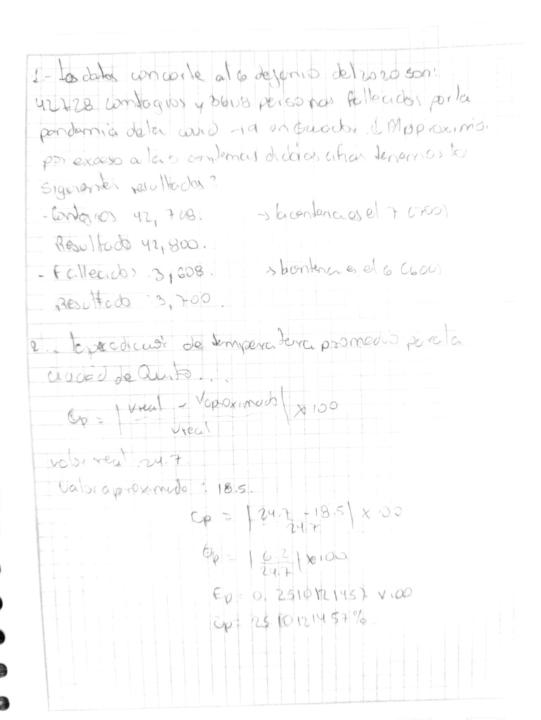 1.- Los datos con corte al 6 de junio del 2020 son:
42728 contagios y 3608 personas fallecidas por la
pandemia de la covid -19 en Ecuador.
por exceso a las centenas dichas cifras tenemos los
siguientes resultados:
- Contagios 42,728. → la centena es el 7 (700)
Resultado 42,800.
- Fallecidos 3,608 → la centena es el 6 (600)
Resultado 3,700
2.- de temperatura promedio para la
ciudad de Quito...
Ep = | Vreal - Vaproximado / Vreal | x 100
valor real 24.7
Valor aproximado : 18.5.
Ep = | 24.7 - 18.5 / 24.7 | x 100
Ep = | 6.2 / 24.7 | x 100
Ep = 0. 2510121457 x 100
Ep = 25 10121457%